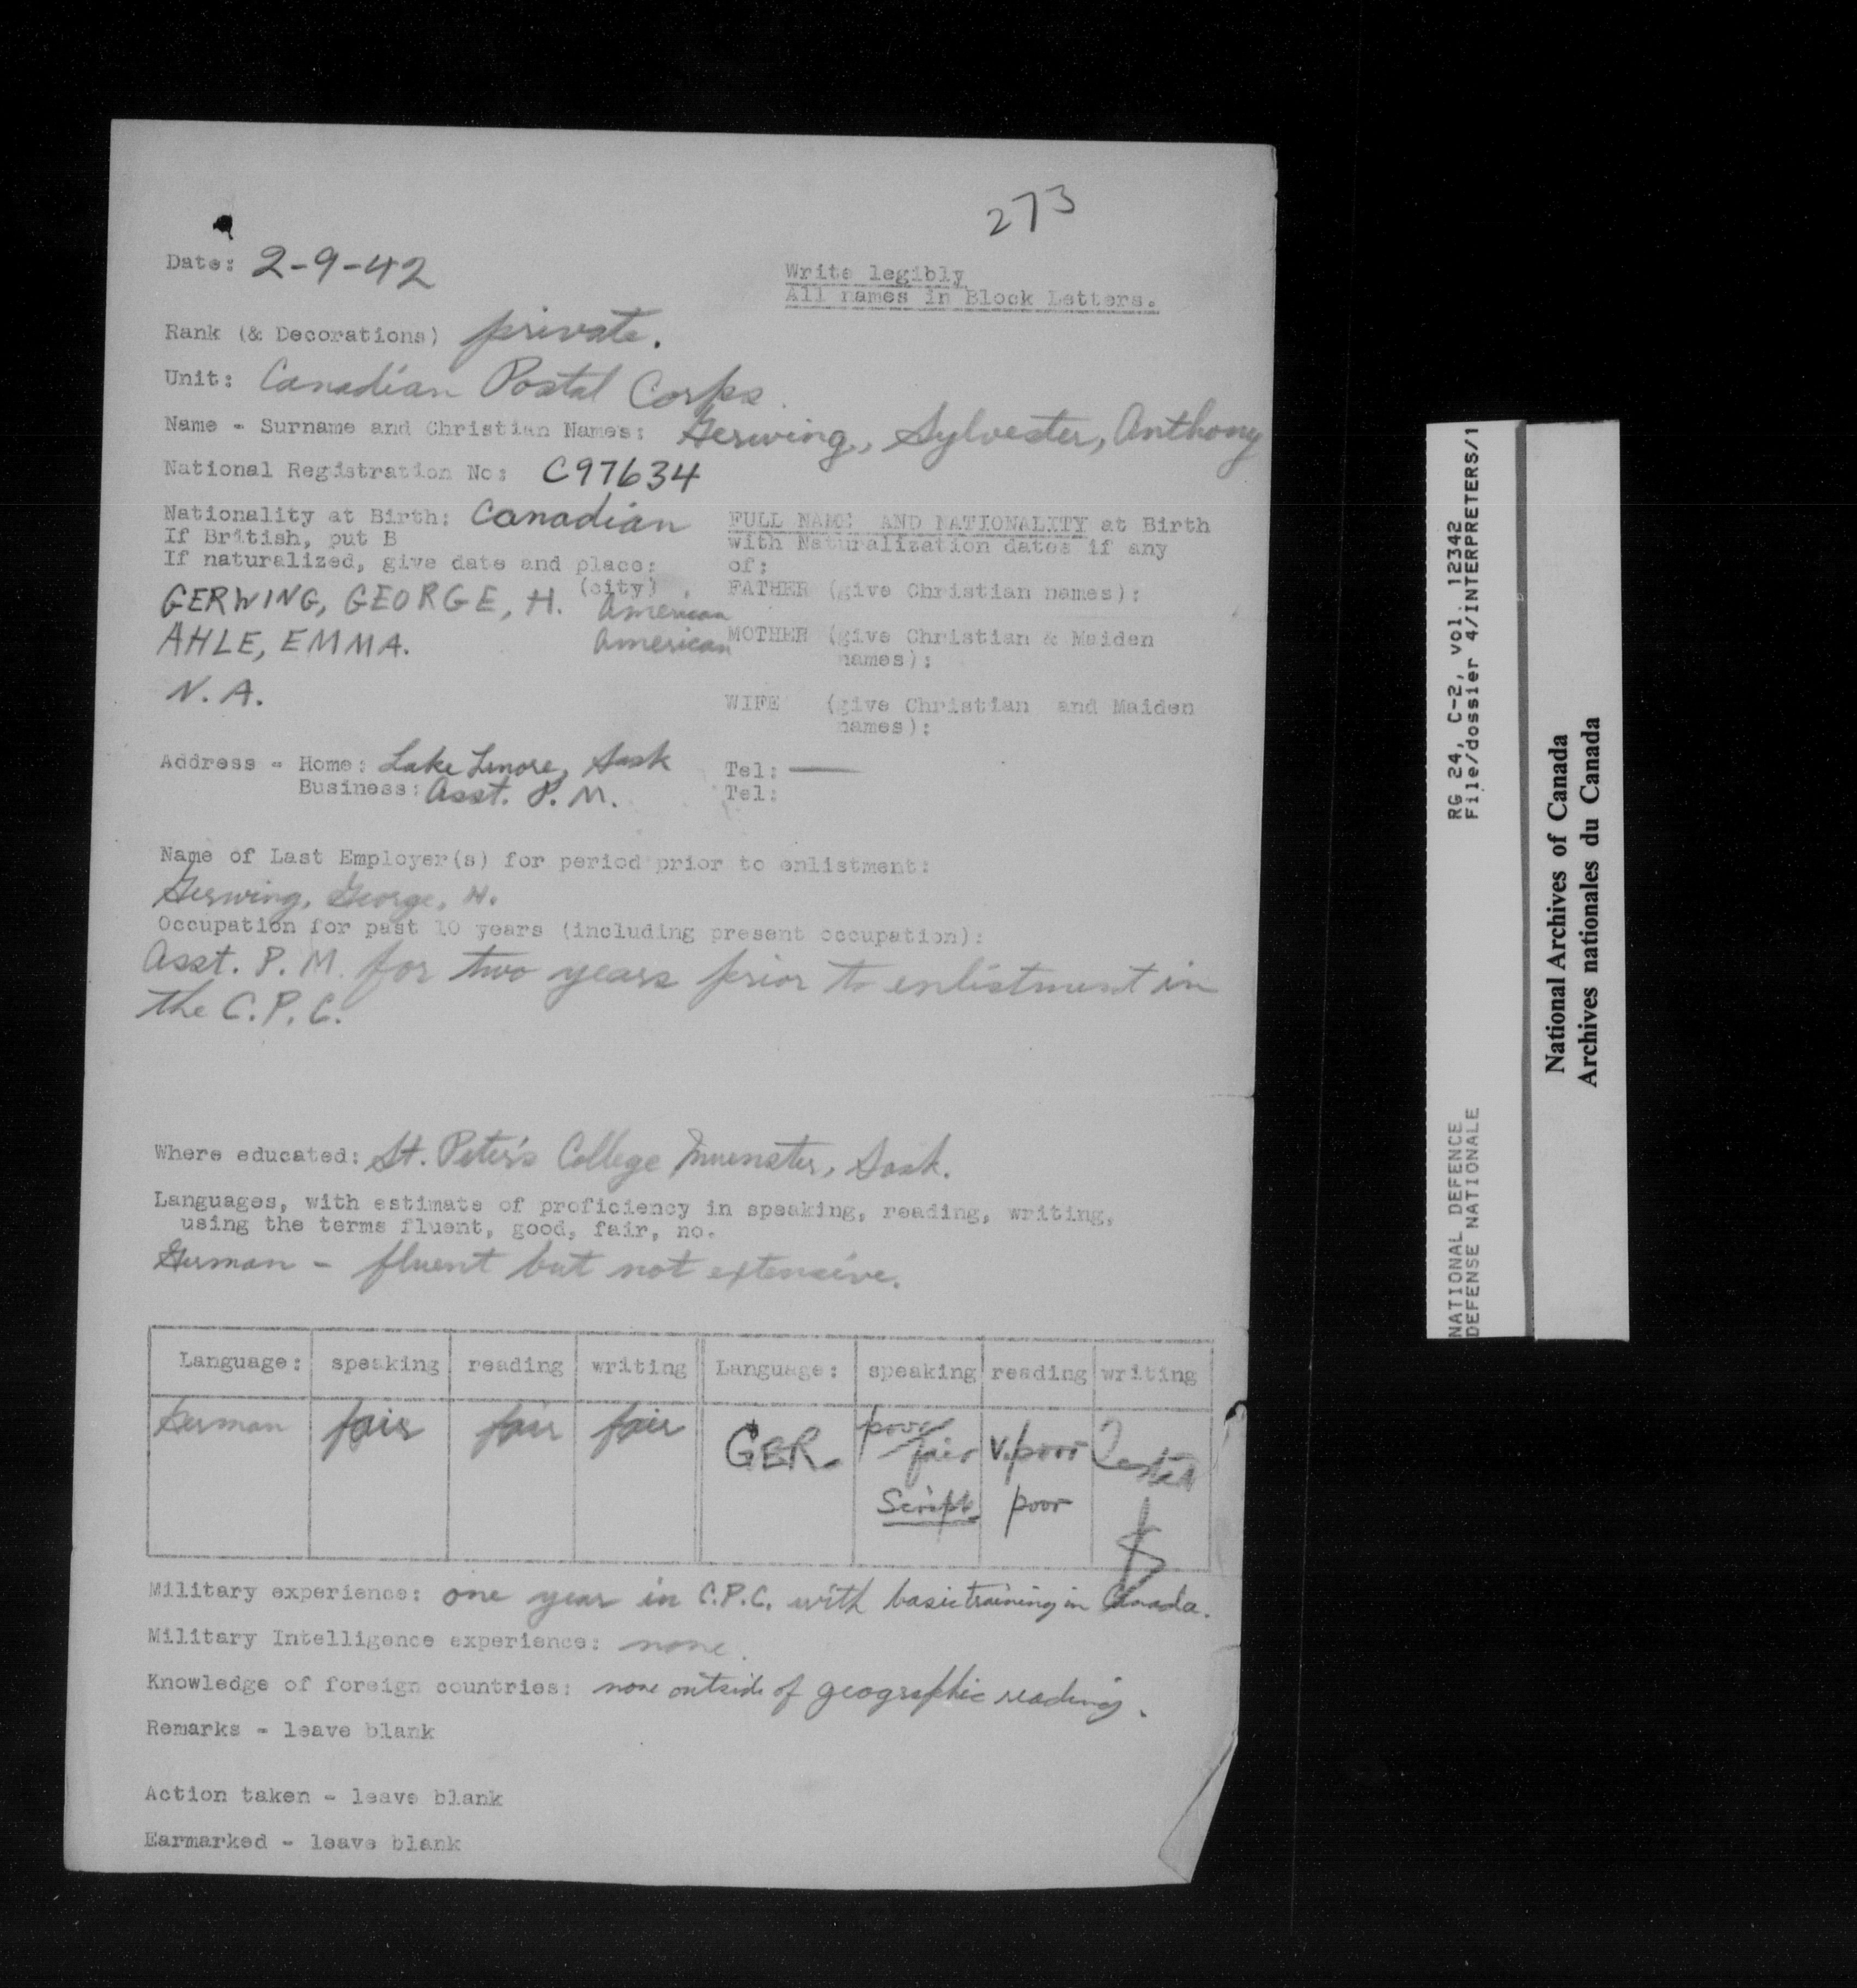 273
Date: 2-9-42
Write legibly
All names in Block Letters.
Rank (& Decorations) private.
Unit: Canadian Postal Corps.
Name - Surname and Christian Names: Gerwing, Sylvester, Anthony
National Registration No: C97634
Nationality at Birth: Canadian
If British, put B
If naturalized, give date and place:
(city)
FULL NAME AND NATIONALITY at Birth
with Naturalization dates if any
of:
GERWING, GEORGE, H. American FATHER (give Christian names):
AHLE, EMMA. American MOTHER (give Christian & Maiden
names):
N. A. WIFE (give Christian and Maiden
names):
Address - Home: Lake Lenore, Sask Tel: —
Business: Asst. P. M. Tel:
Name of Last Employer(s) for period prior to enlistment:
Gerwing, George, H.
Occupation for past 10 years (including present occupation):
Asst. P. M. for two years prior to enlistment in
the C. P. C.
Where educated: St. Peter's College Muenster, Sask.
Languages, with estimate of proficiency in speaking, reading, writing,
using the terms fluent, good, fair, no.
German - fluent but not extensive.
Language: speaking reading writing Language: speaking reading writing
German fair fair fair GER. poor fair v.poor
Script poor
Military experience: one year in C.P.C. with basic training in Canada.
Military Intelligence experience: none.
Knowledge of foreign countries: none outside of geographic reading.
Remarks - leave blank
Action taken - leave blank
Earmarked - leave blank
NATIONAL DEFENCE RG 24, C-2, vol. 12342
DEFENSE NATIONALE File/dossier 4/INTERPRETERS/1
National Archives of Canada
Archives nationales du Canada